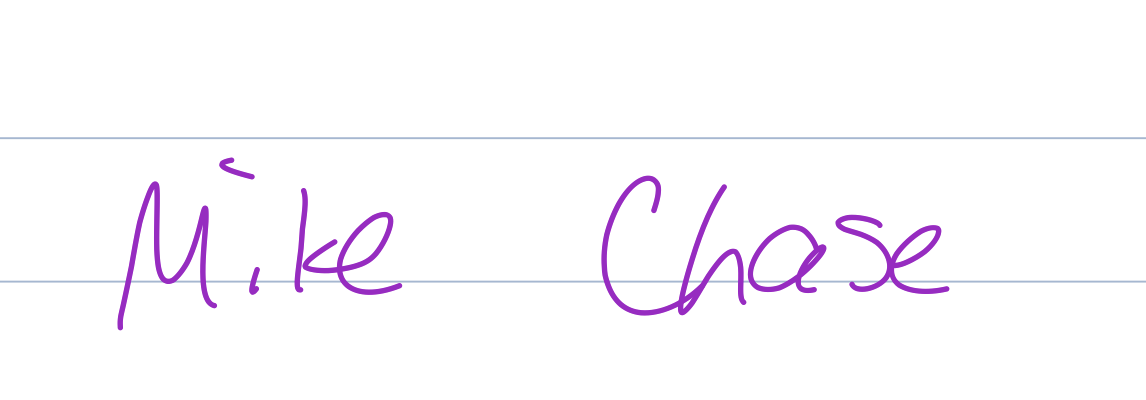 Mike Chase